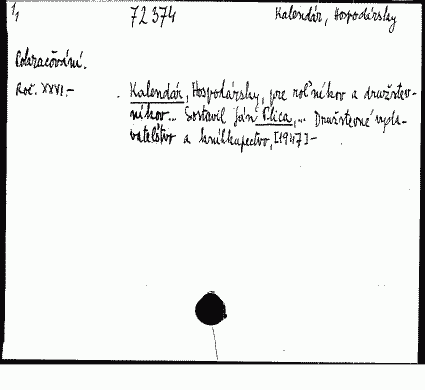 1/1 72374 Kalendár, Hospodársky
Pokračování.
Roč. XXVI.- Kalendár, Hospodársky, pre roľníkov a družstev-
níkov... Sostavil Ján Plica,... Družstevné vyda-
vateľstvo a kníhkupectvo, [1947]-